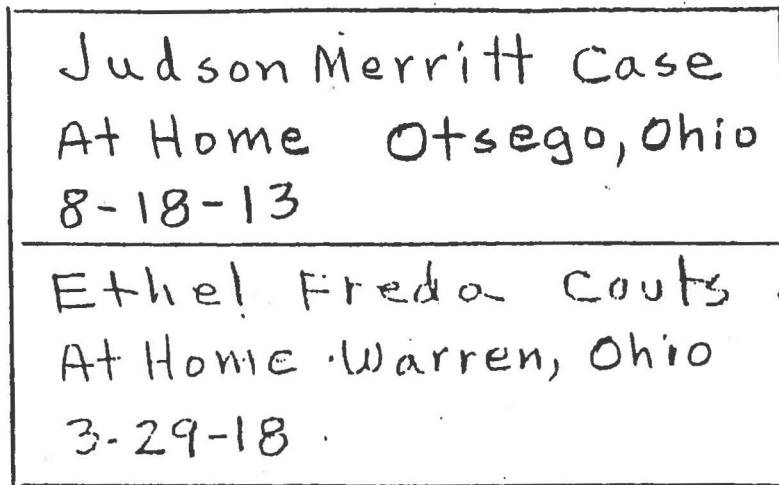 Judson Merritt Case
At Home Otsego, Ohio
8-18-13
Ethel Freda Couts
At Home Warren, Ohio
3-29-18